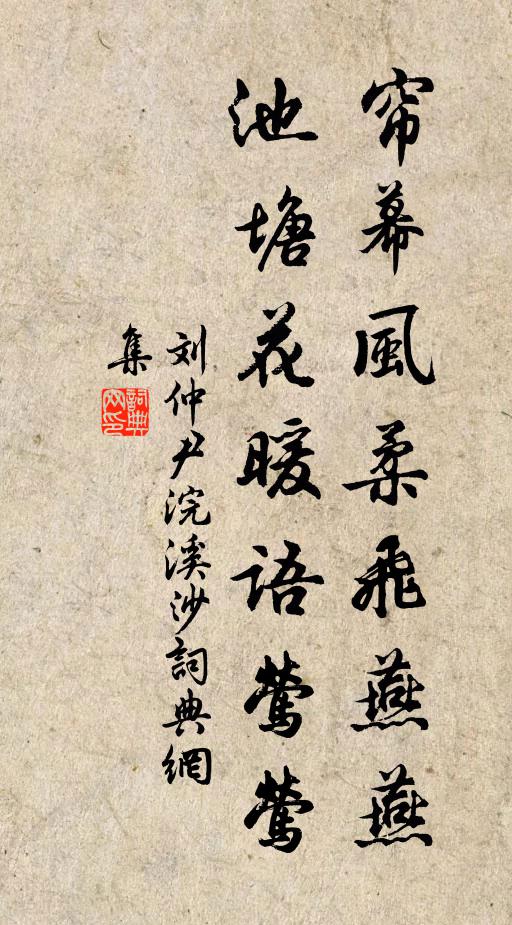 帘幕風柔飛燕燕
池塘花暖语莺莺
刘仲尹浣溪沙詞典網
集
詞典網印